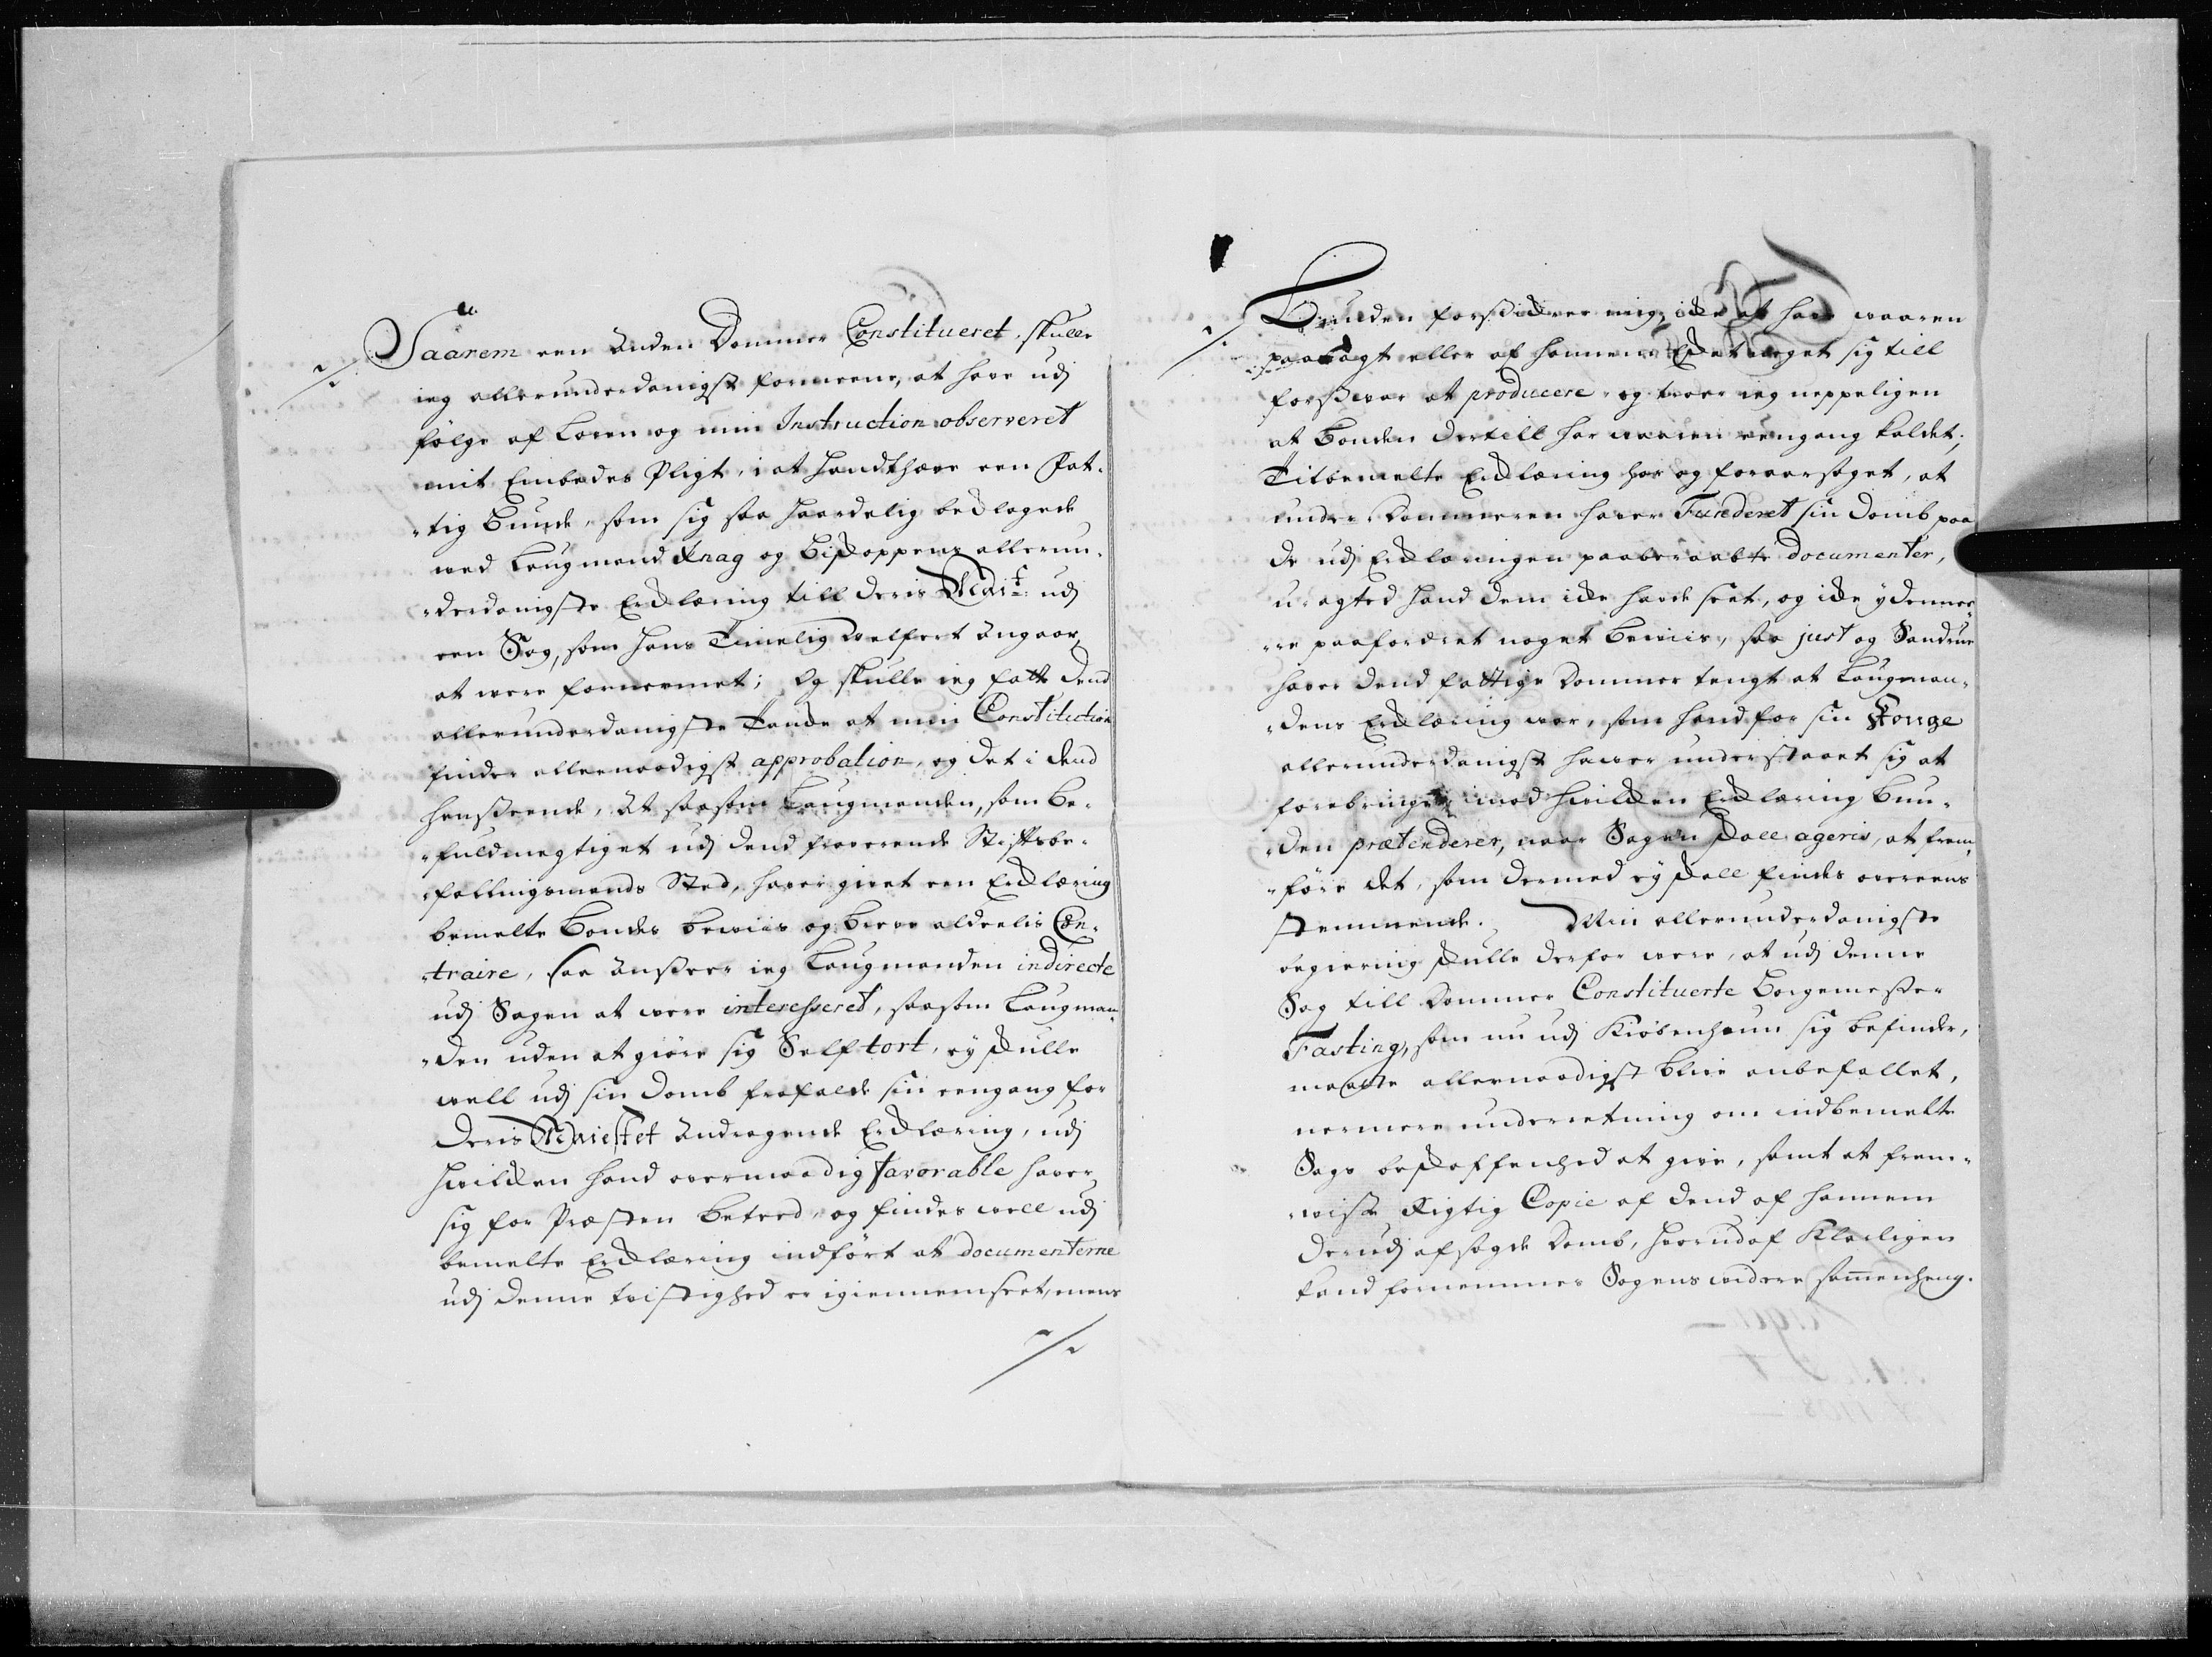 Saarem een anden Dommer Constitueret, skulle
ieg allerunderdanigst formeene, at have udj
følge af Loven og min Instruction observeret
mit Embedes Pligt, i at handthæve een Fat-
tig Bunde, som sig saa haardelig beklagede
ved Laugmand Knag og Biskoppens allerun-
derdanigste Erklæring till Deris Mait: udj
een Sag, som hans Timelig velfert angaar
at were fornermet; Og skulle ieg fatte dend
allerunderdanigste Tande at min Constitution
finder allernaadigst approbation, og det i dend
henseende, At saasom Laugmanden, som be-
fuldmegtiget udj dend fraverende Stiftsbe-
fallingsmands Sted, haver givet een Erklæring
bemelte Bondes beviis og breve aldeelis Con-
traire, saa anseer ieg Laugmanden indirecte
udj Sagen at were interesseret, saasom Laugman-
den uden at giøre sig Self tort, ey skulle
well udj sin Domb frafalde sin eengang for
Deris Maiestet andragende Erklæring, udj
hvilken hand overmaadig favorable haver
sig for Præsten beteed, og findes well udj
bemelte Erklæring indført at documenterne
udj denne tvistighed er igiennemseet, mens
Bunden forsikrer mig, ikke at have vaaren
paalagt eller af hannem Eskt noget sig till
forsvar at producere, og troer ieg neppeligen
at Bonden dertill har vaaren eengang kaldet;
Titbemelte Erklæring har og foraarsaget, at
under Dommeren haver Funderet sin Domb paa
de udj Erklæringen paaberaabte documenter,
uagted hand dem ikke havde seet, og ikke ydermee-
re paafordret noget beviis, saa just og Sandrue
haver dend fattige Dommer tengt at Laugman-
dens Erklæring var, som hand for sin Konge
allerunderdanigst haver understaaet sig at
forebringe, imod hvilken Erklæring Bun-
den prætenderer, naar Sagen skall ageris, at frem-
føre det, som dermed ey skall findes overeens
stemmende. Min allerunderdanigste
begiering skulle derfor were, at udj denne
Sag till Dommer Constituerte Borgemester
Fasting, som nu udj Kiøbenhaun sig befinder,
maatte allernaadigst blive anbefallet,
nermere underretning om indbemelte
Sags beskaffenhed at give, samt at frem-
vise Rigtig Copie af dend af hannem
derudj afsagde Domb, hvorudaf Klarligen
kand fornemmes Sagens videre sammenheng.